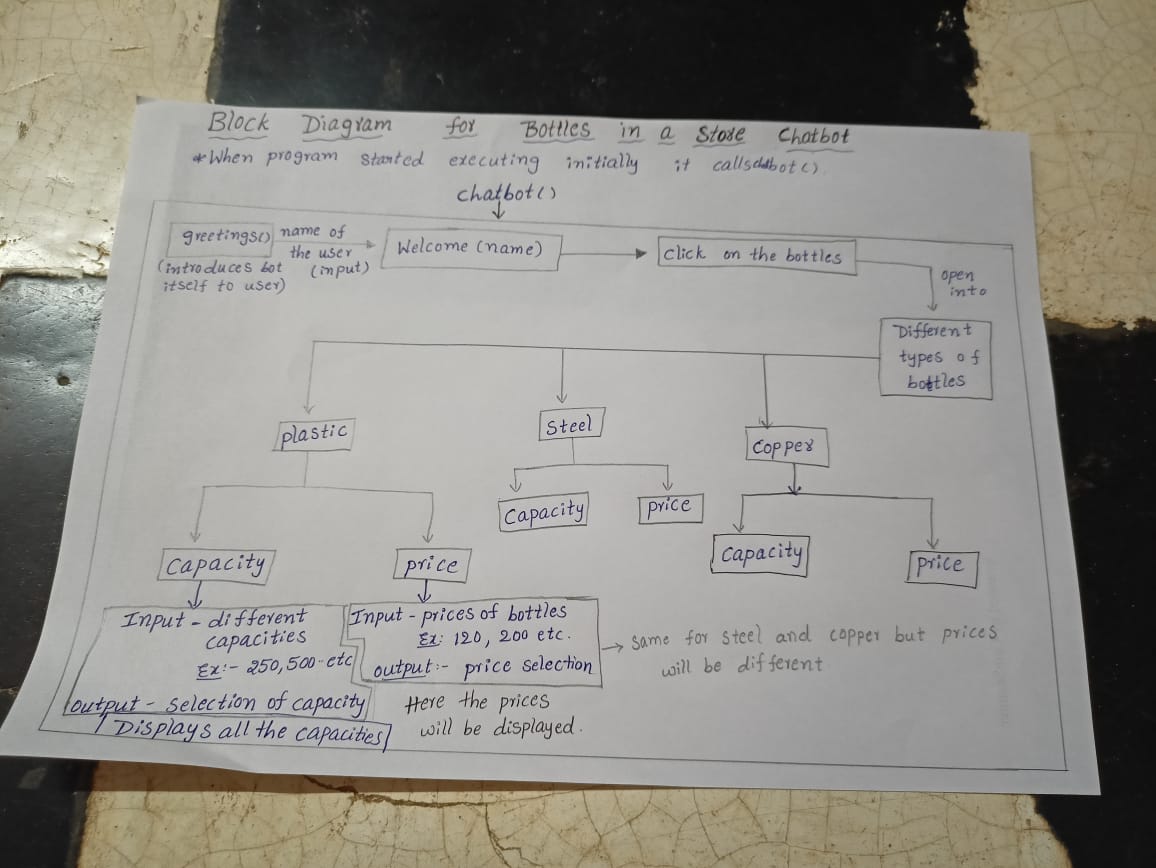 Block Diagram for Bottles in a Store Chatbot
*When program started executing initially it calls chatbot()
chatbot()
greetings()
name of
the user
(input)
(introduces bot
itself to user)
Welcome (name)
click on the bottles
open
into
Different
types of
bottles
plastic
Steel
Copper
Capacity
price
Capacity
price
Capacity
price
Input - different
capacities
Ex:- 250, 500 - etc
output - selection of capacity
Displays all the capacities
Input - prices of bottles
Ex: 120, 200 etc.
output:- price selection
Here the prices
will be displayed.
→ Same for steel and copper but prices
will be different